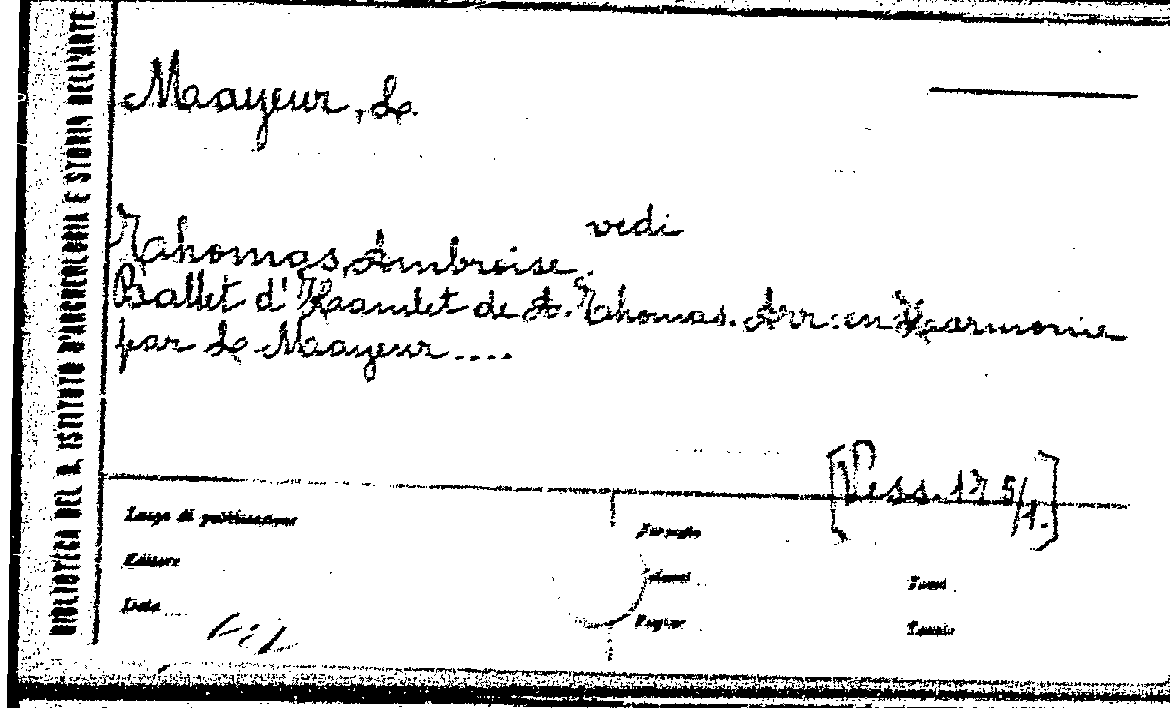 BIBLIOTECA DEL R. ISTITUTO D'ARCHEOLOGIA E STORIA DELL'ARTE
Maayeur, L.
vedi
Thomas, Ambroise.
Ballet d'Hamlet de A. Thomas. Arr: en Harmonie
par L. Maayeur....
[Vess. 17 5/1.]
Luogo di pubblicazione
Formato
Editore
Volumi
Tomi
Data
Pagine
Tavole